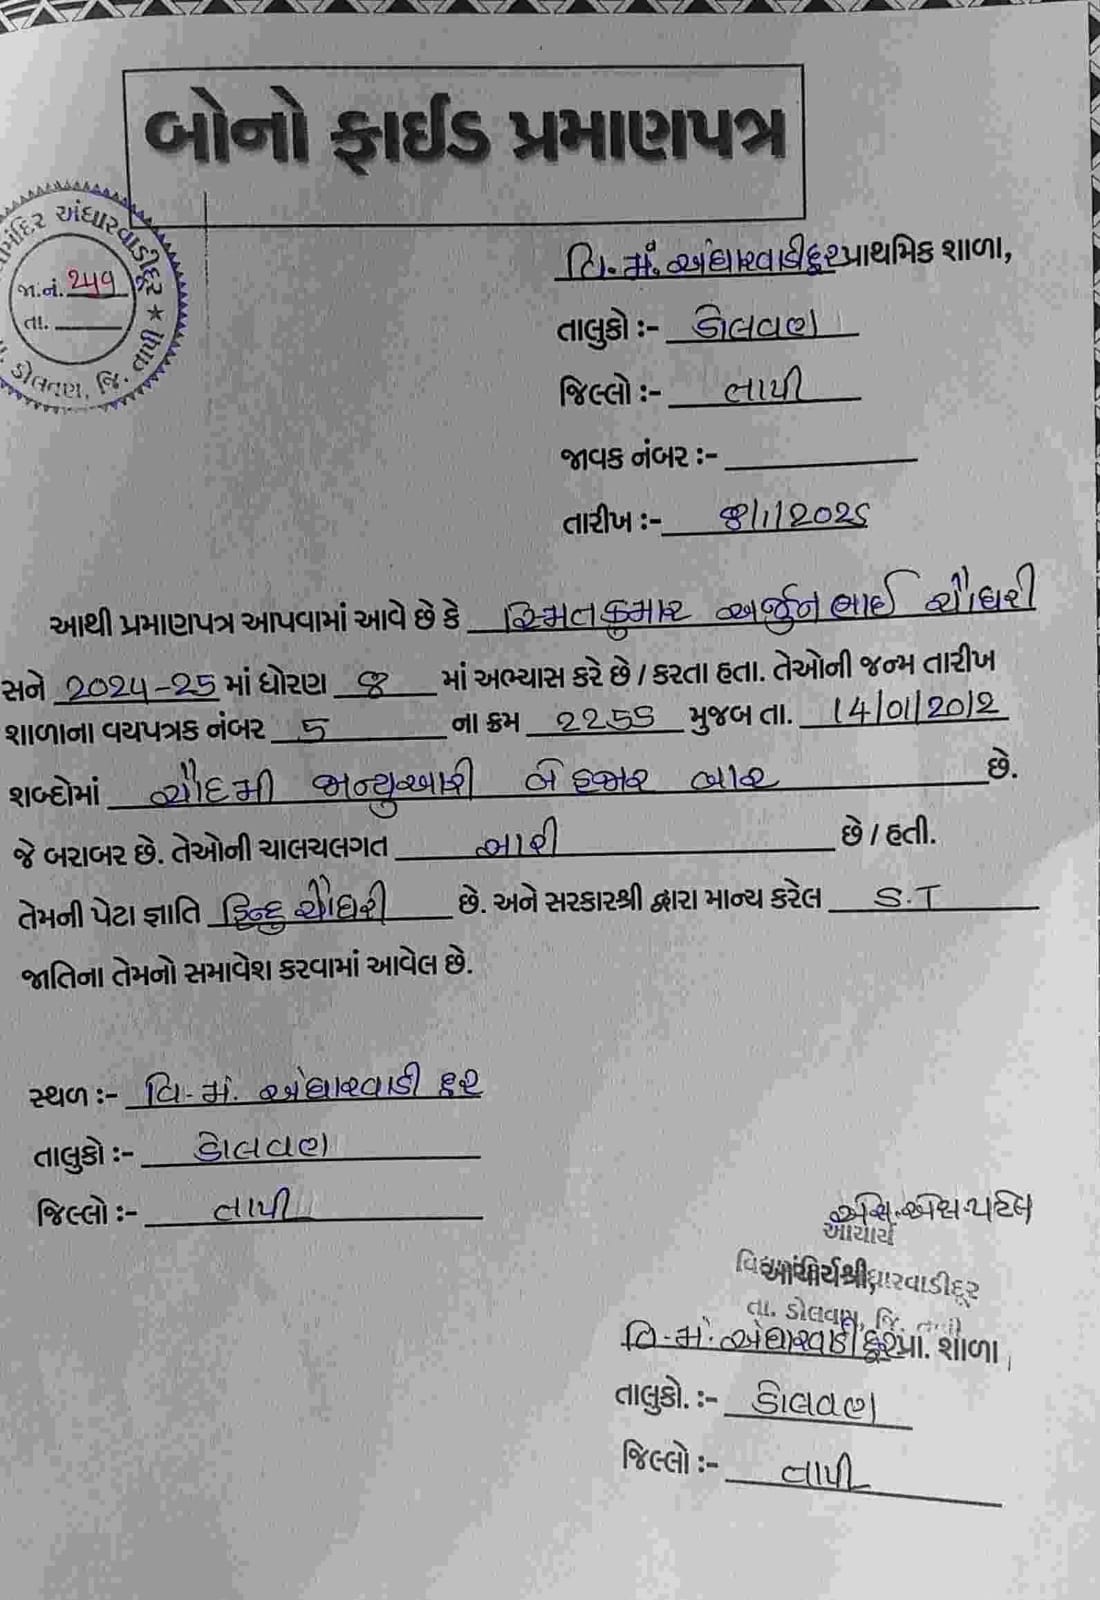 બોનો ફાઈડ પ્રમાણપત્ર
મંદિર અંધારવાડીદૂર ★
જા.નં. ૨૫૧
તા.
ડોલવણ, જિ. તાપી
વિ.મં. અંધારવાડીદુર પ્રાથમિક શાળા,
તાલુકો :- ડોલવણ
જિલ્લો :- તાપી
જાવક નંબર :-
તારીખ :- 8/1/202
આથી પ્રમાણપત્ર આપવામાં આવે છે કે સ્મિતકુમાર અર્જુનભાઈ ચૌધરી
સને 2024-25 માં ધોરણ ૭ માં અભ્યાસ કરે છે / કરતા હતા. તેઓની જન્મ તારીખ
શાળાના વયપત્રક નંબર 5 ના ક્રમ મુજબ તા. 14/01/2012
શબ્દોમાં ચૌદમી જાન્યુઆરી બે હજાર બાર છે.
જે બરાબર છે. તેઓની ચાલચલગત સારી છે / હતી.
તેમની પેટા જ્ઞાતિ હિન્દુ ચૌધરી છે. અને સરકારશ્રી દ્વારા માન્ય કરેલ S.T
જાતિના તેમનો સમાવેશ કરવામાં આવેલ છે.
સ્થળ :- વિ.મં. અંધારવાડી દુર
તાલુકો :- ડોલવણ
જિલ્લો :- તાપી
એસ.પટેલ
આચાર્ય
આચાર્યશ્રી,
અંધારવાડીદૂર
તા. ડોલવણ, જિ. તાપી
વિ.મં. અંધારવાડી દૂર પ્રા. શાળા,
તાલુકો. :- ડોલવણ
જિલ્લો :- તાપી